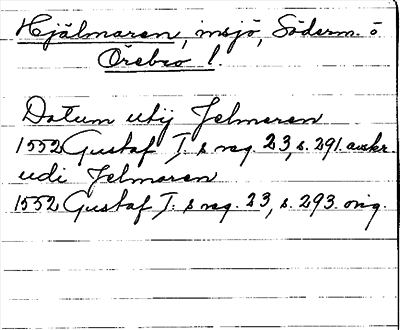 Hjälmaren, insjö, Söderm. o
Örebro l.
Datum utij Jelmaren
1552 Gustaf I:s reg. 23, s. 291. avskr.
udi Jelmaren
1552 Gustaf I:s reg. 23, s. 293. orig.